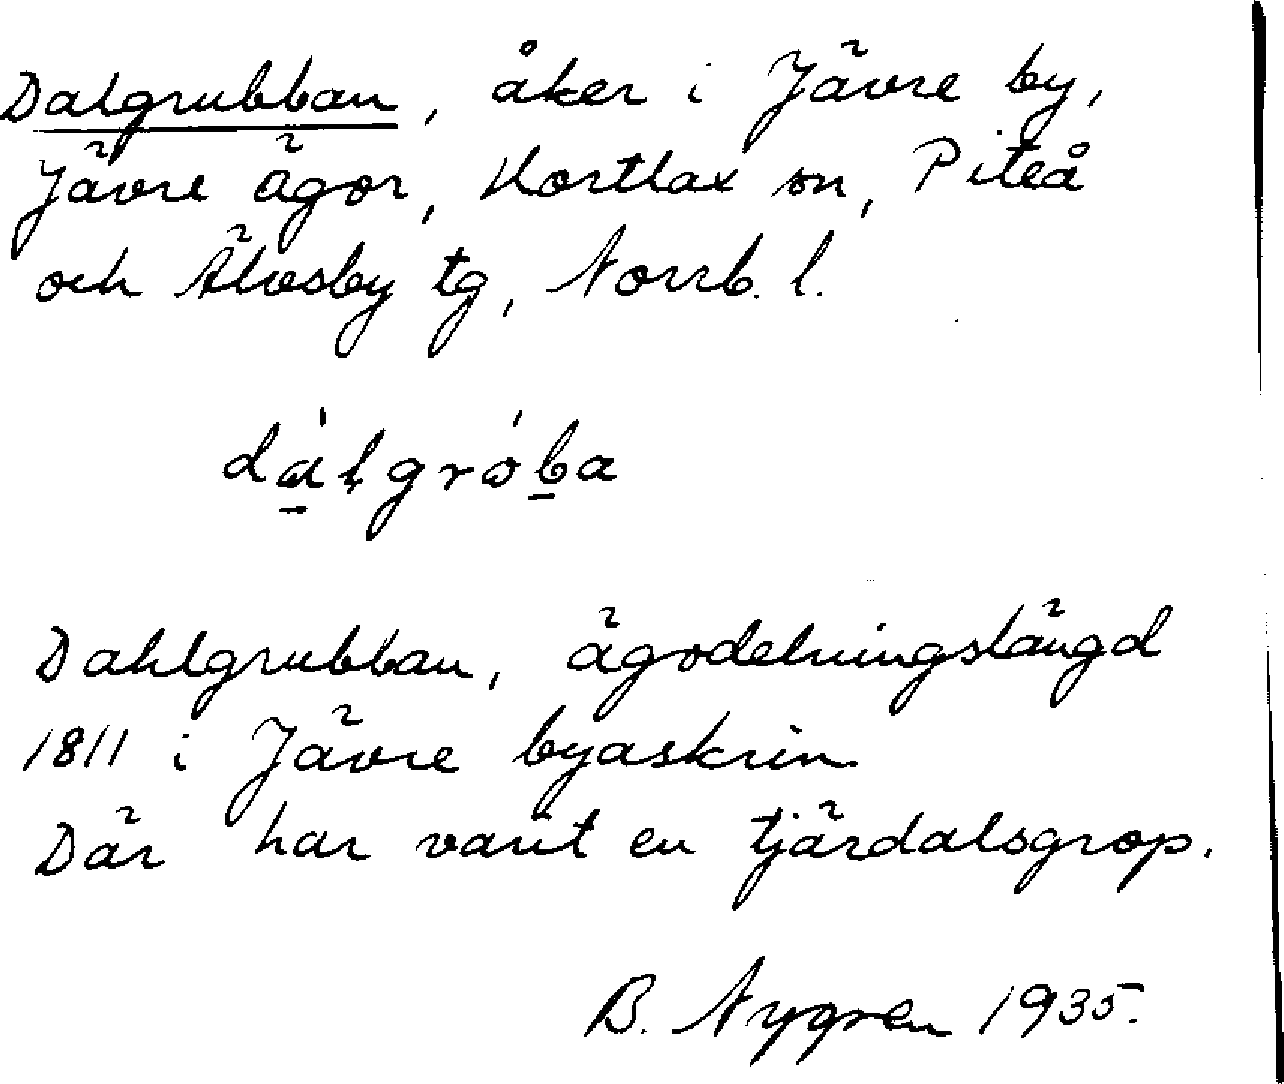 Dalgrubban, åker i Jävre by,
Jävre ägor, Hortlax sn, Piteå
och Älvsby tg, Norrb. l.
dàlgróba
Dahlgrubban, ägodelningslängd
1811 i Jävre byaskrin
Där har varit en tjärdalsgrop.
B. Nygren 1935.